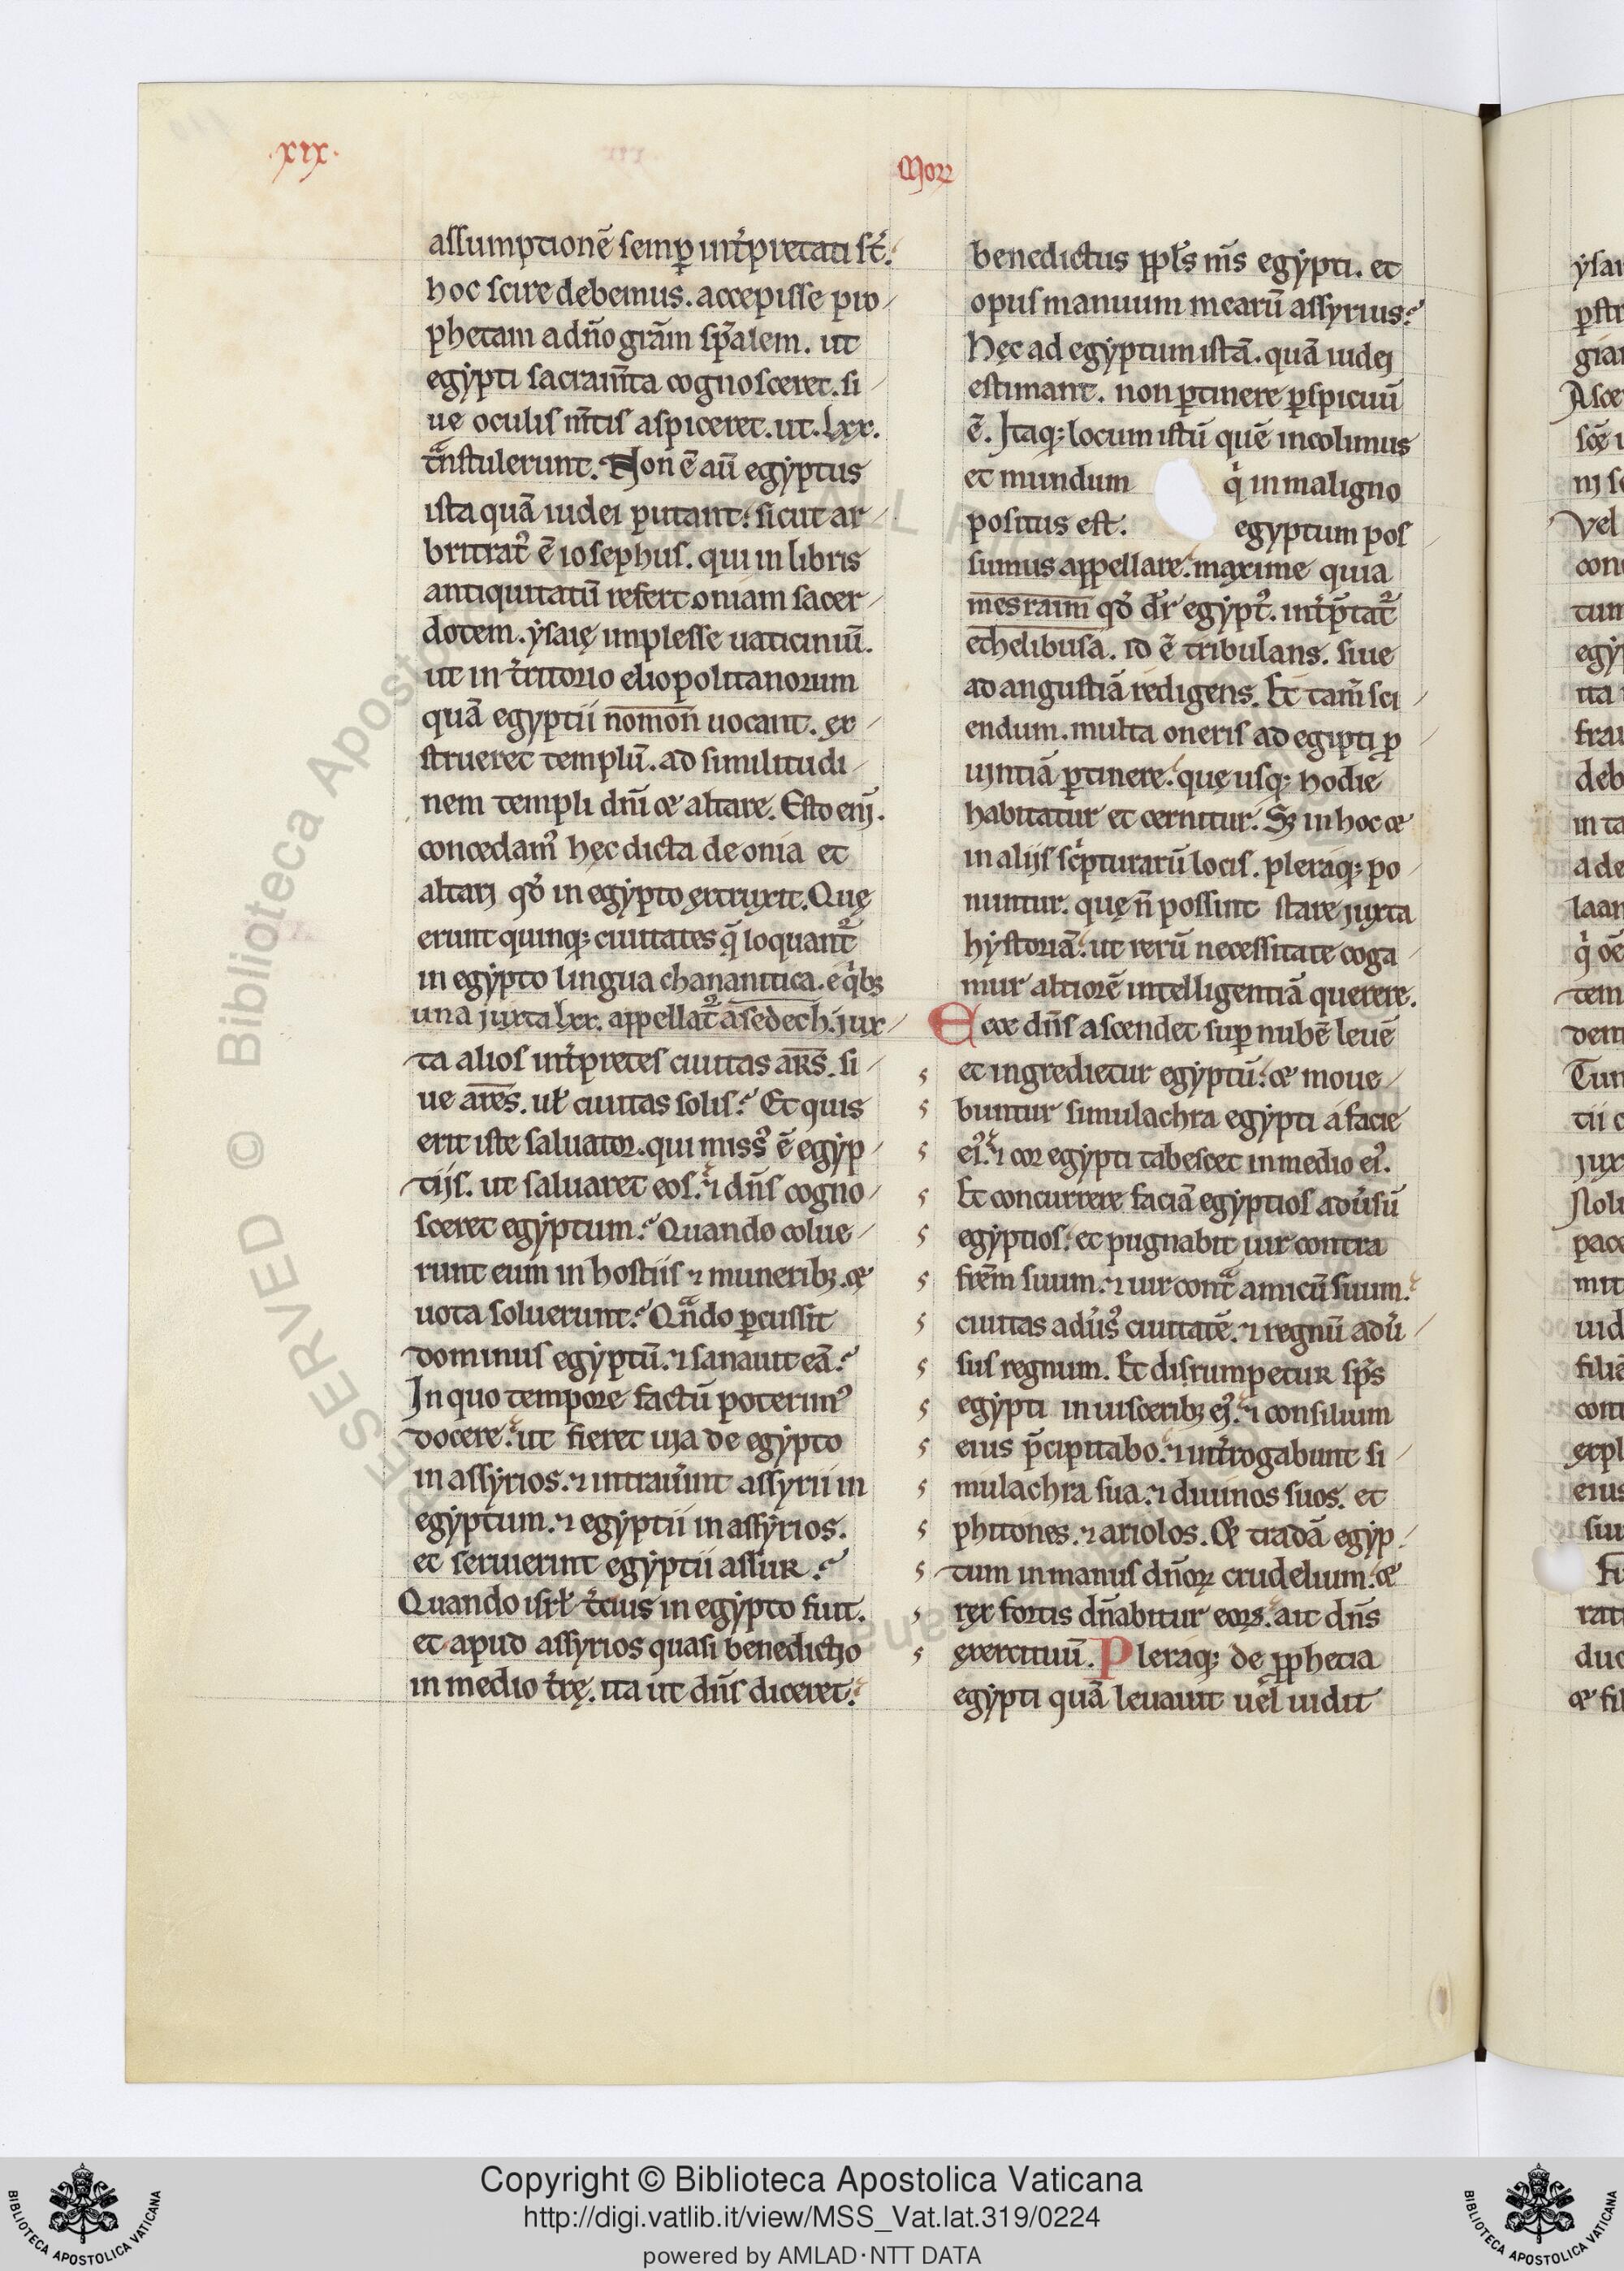 ·xix·
Moꝝ
assumptionē semꝑ int̓pretati st̄.
hoc scire debemus. accepisse pro
phetam a dño grām sp̄alem. ut
egẏpti sacram̄ta cognosceret. si
ue oculis m̄tis aspiceret. ut. lxx.
tͣnstulerunt. Non ē aū egẏptus
ista quā iudei putant. sicut ar
britrat᷑ ē iosephus. qui in libris
antiquitatū refert oniam sacer
dotem. ẏsaię implesse uaticiniū.
ut in t̓ritorio eliopolitanorum
quā egyptii nomon uocant. ex
strueret templū. ad similitudi
nem templi dnī & altare. Esto enj̄.
concedam᷒ hęc dicta de onia et
altarj qđ in egẏpto extruxit. Quę
erunt quinq; ciuitates q̄ loquant᷑
in egẏpto lingua chananitica. e qͥbꝫ
una juxta lxx. appellat᷑ asedech. jux
ta alios int̓pretes ciuitas aR̄s. si
ue arēs. uƚ ciuitas solis? Et quis
erit iste saluator. qui miss᷒ ē egẏp
tijs. ut saluaret eos. ⁊ dn̄s cogno
sceret egẏptum? Quando colue
runt eum in hostiis ⁊ muneribꝫ. &
uota soluerunt? Qͣndo ꝑcussit
dominus egẏptū. ⁊ sanauit eā?
In quo tempore factū poterim᷒
docere. ut fieret uja de egẏpto
in assẏrios. ⁊ intrau̓int assẏrii in
egẏptum. ⁊ egẏptii in assẏrios.
et seruierint egẏptii assuR?
Quando isrƚ t̓cius in egẏpto fuit.
et apud assẏrios quasi benedictio
in medio t̓rę. ita ut dn̄s diceret.
benedictus ppƚs m̄s egẏpti. et
opus manuum mearū assyrius?
Hęc ad egẏptum istā. quā iudej
estimant. non ꝑtinere ꝑspicuū
ē. Itaq; locum istū quē incolimus
et mundum qͥ in maligno
positus est. egyptum pos
sumus appellare. maxime quia
mesraim qđ dr̄ egẏpt᷒. int̓p̄tat᷑
ethelibusa. id ē tribulans. siue
ad angustiā redigens. Et tam̄ sci
endum. multa oneris ad egipti ꝓ
ujntiā ꝑtinere. quę usq; hodie
habitatur et cernitur. Sꝫ in hoc &
in alijs scͥpturarū locis. pleraq; po
nuntur. quę n̄ possint stare juxta
hẏstoriā. ut rerū necessitate coga
mur altiorē intelligentiā querere.
Ecce dn̄s ascendet suꝑ nubē leuē
et ingredietur egẏptū. & moue
buntur simulachra egẏpti a facie
ei᷒. ⁊ cor egẏpti tabescet in medio ei᷒.
Et concurrere faciā egẏptios adu̓sū
egẏptios. et pugnabit uir contra
frēm suum. ⁊ uir contͣ amicū suum.
ciuitas adu̓s᷒ ciuitatē. ⁊ regnū adu̓
sus regnum. Et disrumpetuR sp̄s
egẏpti in uisceribꝫ ej᷒. ⁊ consilium
eius p̄cipitabo. ⁊ int̓rogabunt si
mulachra sua. ⁊ diuinos suos. et
phitones. ⁊ ariolos. Et tradā egẏp
tum in manus dn̄oꝝ crudelium. &
rex fortis dn̄abitur eoꝝ. ait dn̄s
exercituū. Pleraq; de pphetia
egẏpti quā leuauit uel uidit
Copyright © Biblioteca Apostolica Vaticana
http://digi.vatlib.it/view/MSS_Vat.lat.319/0224
powered by AMLAD·NTT DATA
BIBLIOTECA APOSTOLICA VATICANA
BIBLIOTECA APOSTOLICA VATICANA